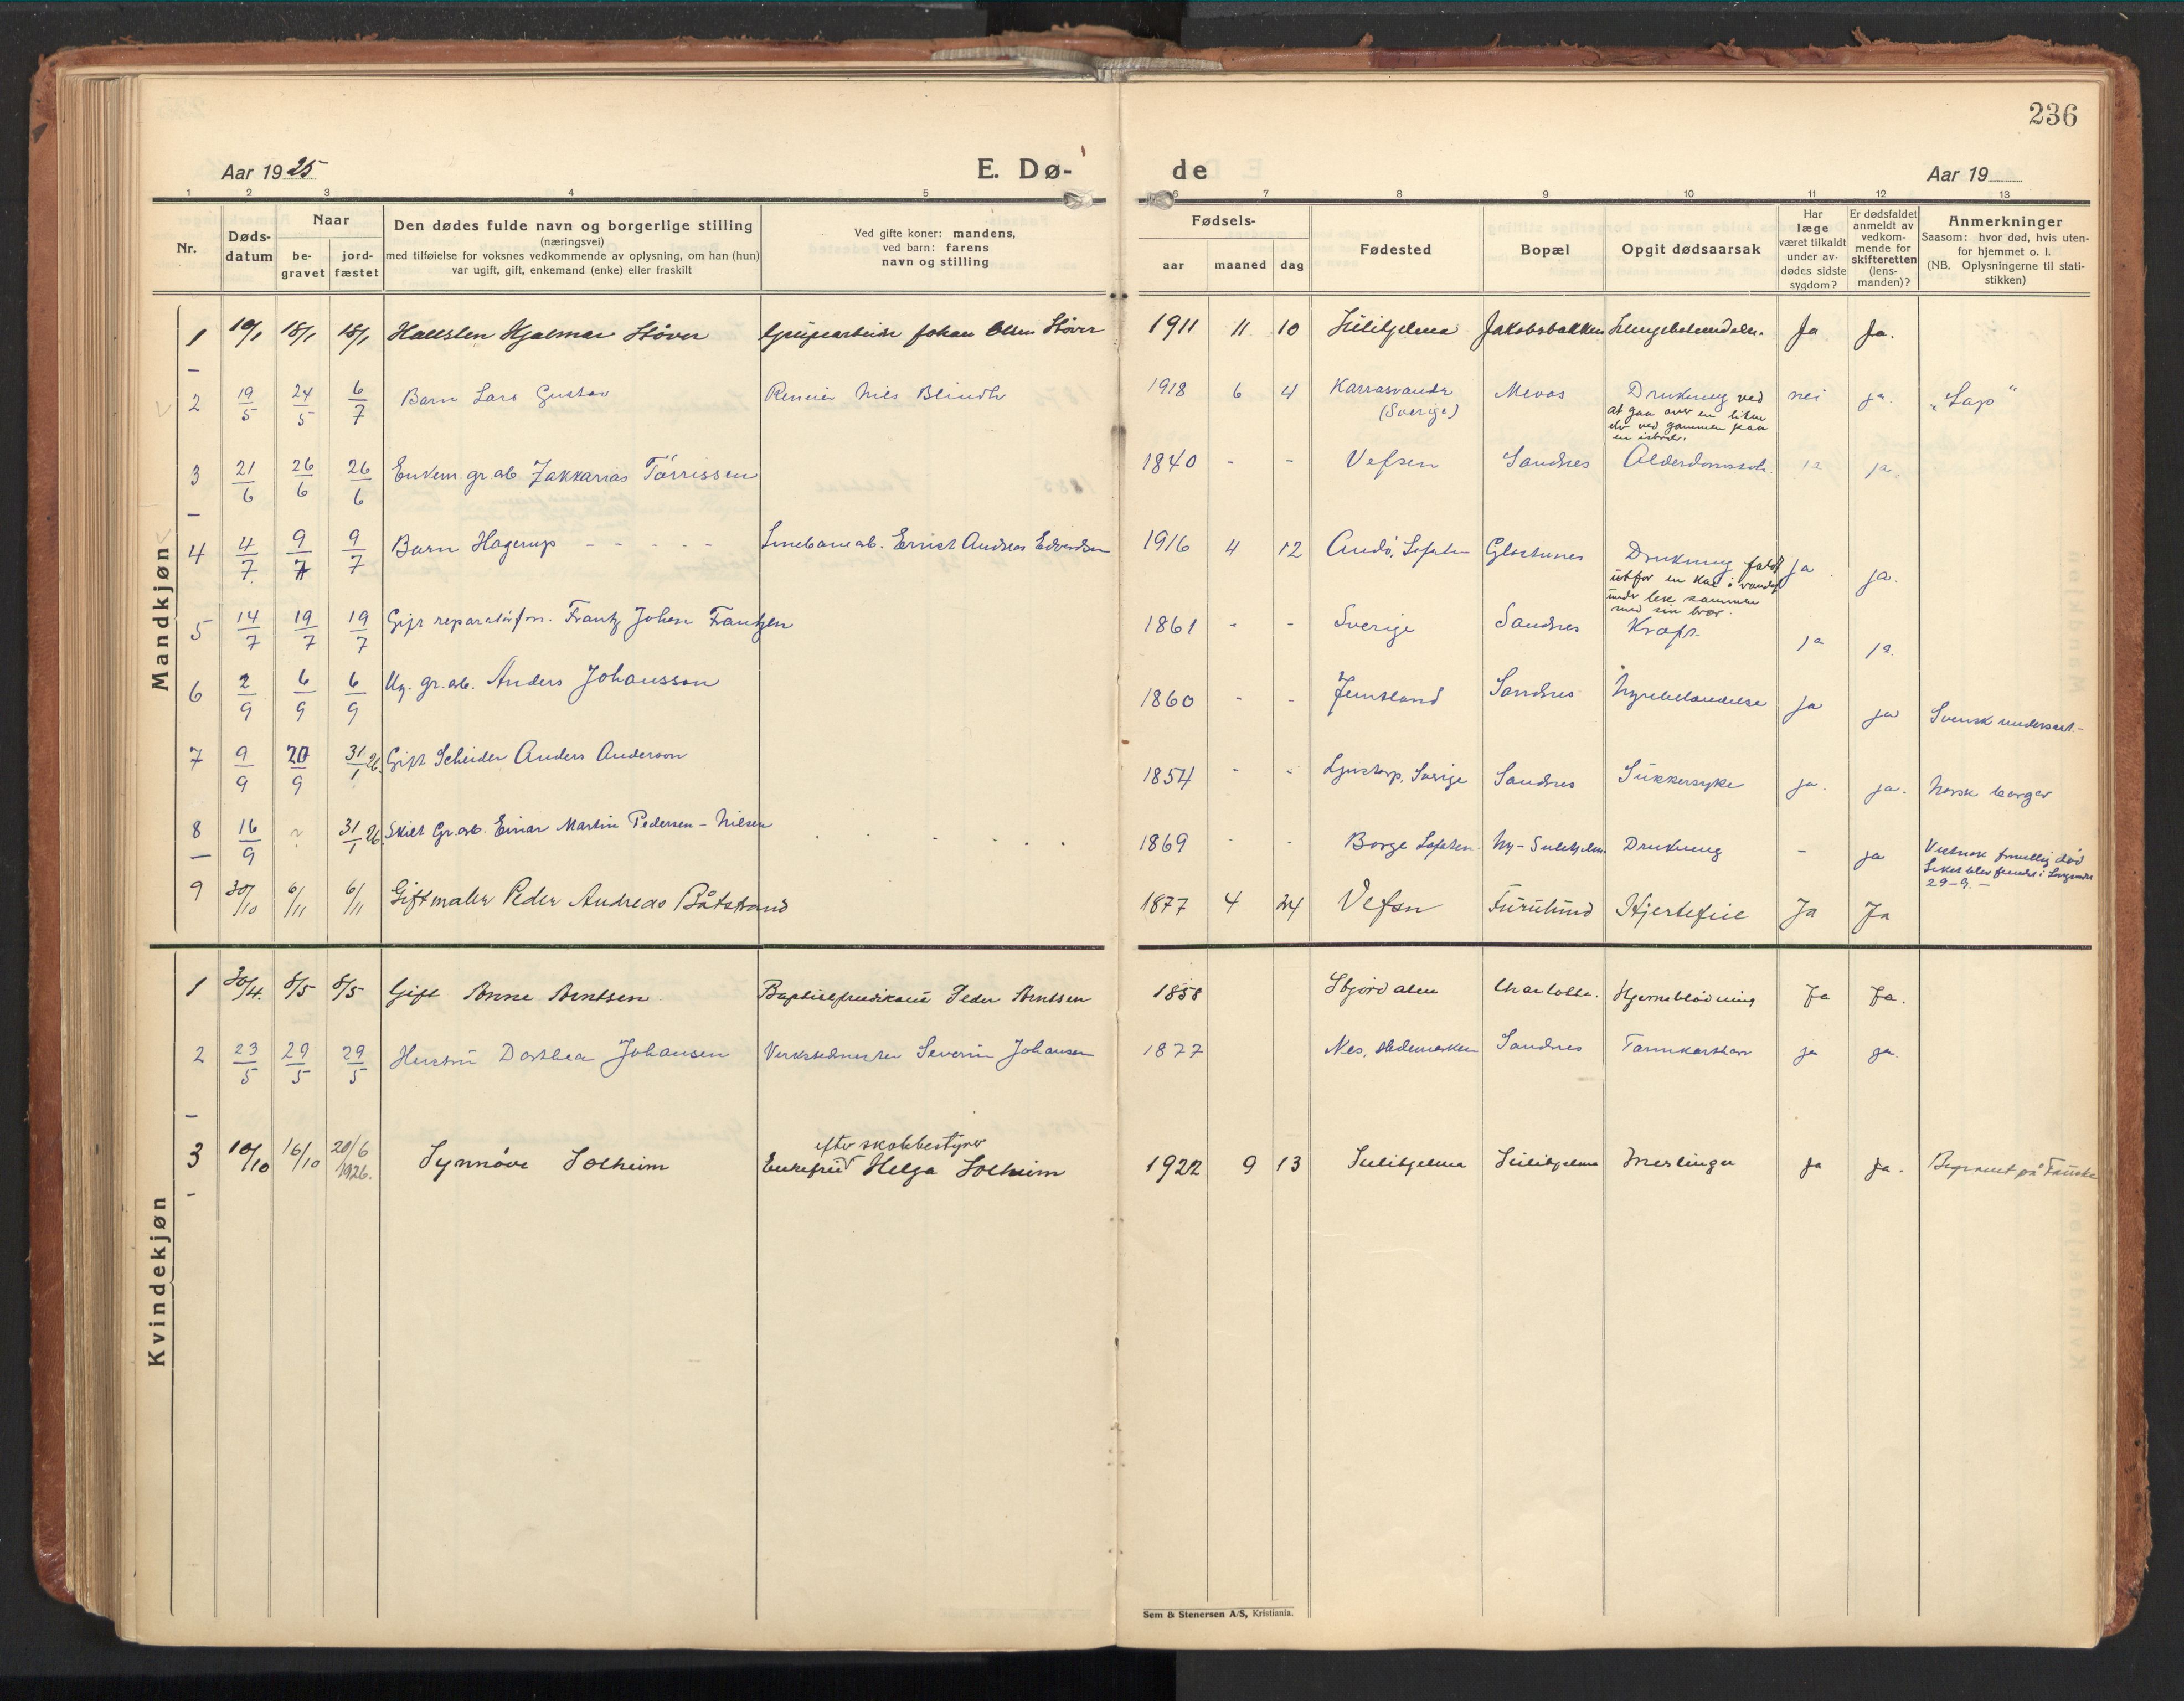 236
Aar 1925 E. Dø- de Aar 19
1 2 3 4 5 6 7 8 9 10 11 12 13
Nr.
Døds-
datum
Naar
be-
gravet
jord-
fæstet
Den dødes fulde navn og borgerlige stilling
(næringsvei)
med tilføielse for voksnes vedkommende av oplysning, om han (hun)
var ugift, gift, enkemand (enke) eller fraskilt
Ved gifte koner: mandens,
ved barn: farens
navn og stilling
Fødsels-
aar maaned dag
Fødested
Bopæl
Opgit dødsaarsak
Har
læge
været tilkaldt
under av-
dødes sidste
sygdom?
Er dødsfaldet
anmeldt av
vedkom-
mende for
skifteretten
(lens-
manden)?
Anmerkninger
Saasom: hvor død, hvis uten-
for hjemmet o. l.
(NB. Oplysningerne til stati-
stikken)
Mandkjøn
1 10/1 18/1 18/1 Hallsten Hjalmar Støver Grubearbeider Johan Olsen Støver 1911 11 10 Sulitjelma Jakobsbakken Lungebetendelse. Ja Ja.
2 19/5 24/5 6/7 Barn Lars Gustav Reneier Nils Blindh 1918 6 4 Karrasvande Mevas Drukning ved nei ja. "Lap"
(Sverige) at gaa over en liten
elv ved gammen paa
en isbro.
3 21/6 26/6 26/6 Enkem. gr.arb. Zakkarias Tørrissen 1840 - - Vefsen Sandnes Alderdomssvk. ja ja.
4 4/7 9/7 9/7 Barn Hagerup - - - - - Linebanearb. Ernst Andreas Edvardsen 1916 4 12 Andö, Lofoten Glastunes Drukning faldt ja ja.
utfor en kai i vandet
under lek sammen
med sin bror.
5 14/7 19/7 19/7 Gift reparatørfm. Frantz Johan Frantzen 1861 - - Sverige Sandnes Kræft ja ja.
6 2/9 6/9 6/9 Ug. gr.arb. Anders Johansson 1860 - - Jemtland Sandnes Nyrebetendelse ja ja Svensk undersaat.-
7 9/9 20/9 31/1 26. Gift Scheider Anders Anderson 1854 - - Ljustorp, Sverige Sandnes Sukkersyke ja. ja. Norsk borger
8 16/9 31/1 26. Skilt Gr.arb. Einar Martin Pedersen-Nilsen 1869 - - Borge Lofoten Ny-Sulitjelma Drukning - ja
29-9.-
9 30/10 6/11 6/11 Gift maler Peder Andreas Båtstrand 1877 4 24 Vefsn Furulund Hjertefeil Ja Ja
Kvindekjøn
1 30/4. 8/5 8/5 Gift Anne Arntsen Baptistpredikant Peder Arntsen 1858 Stjørdalen Charlotta. Hjerneblødning Ja Ja.
2 23/5 29/5 29/5 Hustru Dorthea Johansen Verksedmester Severin Johansen 1877 Nes, Hedemarken Sandnes Tarmkatarr ja ja.
efter skolebestyrer
3 10/10 16/10 20/6 1926. Synnøve Solheim Enkefru Helga Solheim 1922 9 13 Sulitjelma Sulitjelma Meslinger ja ja. Begravet på Fauske
Sem & Stenersen A/S, Kristiania.